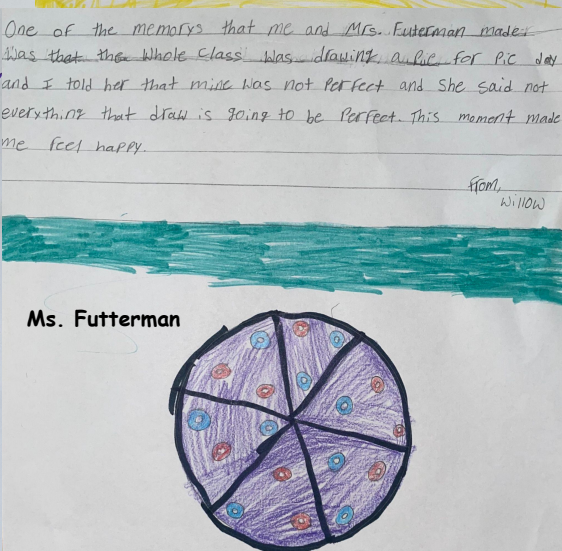 One of the memorys that me and Mrs. Futerman made
Was that the Whole Class Was drawing a Pie for Pie day
and I told her that mine Was not Perfect and She said not
everything that draw is going to be Perfect. This moment made
me feel happy.
From,
Willow
Ms. Futterman